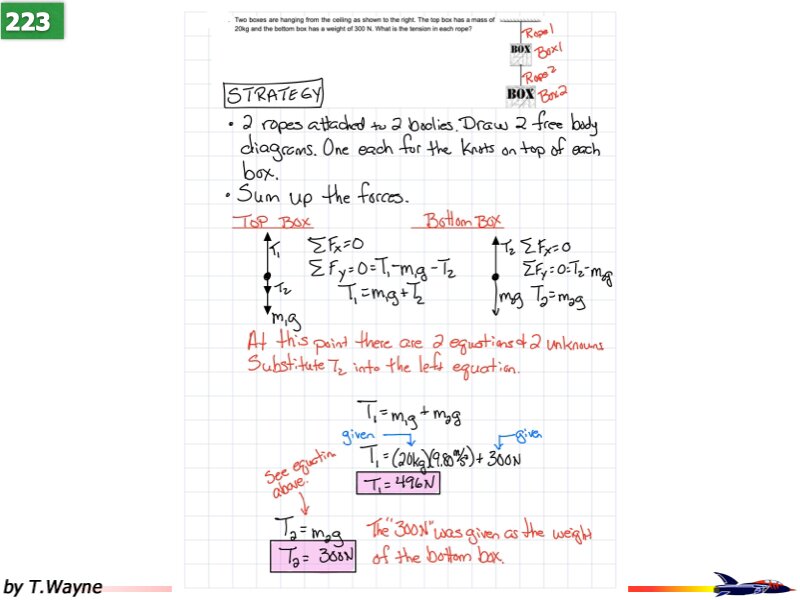 223
Two boxes are hanging from the ceiling as shown to the right. The top box has a mass of
20kg and the bottom box has a weight of 300 N. What is the tension in each rope?
Rope 1
BOX Box 1
Rope 2
BOX Box 2
STRATEGY
• 2 ropes attached to 2 bodies. Draw 2 free body
diagrams. One each for the knots on top of each
box.
• Sum up the forces.
TOP BOX
T₁
ΣFx=0
ΣFy=0=T₁-m₁g-T₂
T₂
T₁=m₁g+T₂
m₁g
Bottom Box
T₂ ΣFx=0
ΣFy=0=T₂-m₂g
m₂g T₂=m₂g
At this point there are 2 equations & 2 unknowns
Substitute T₂ into the left equation.
T₁=m₁g+m₂g
given given
T₁=(20kg)(9.80 m/s²)+300N
T₁=496N
See equation
above.
T₂=m₂g
T₂= 300N
The "300N" was given as the weight
of the bottom box.
by T.Wayne